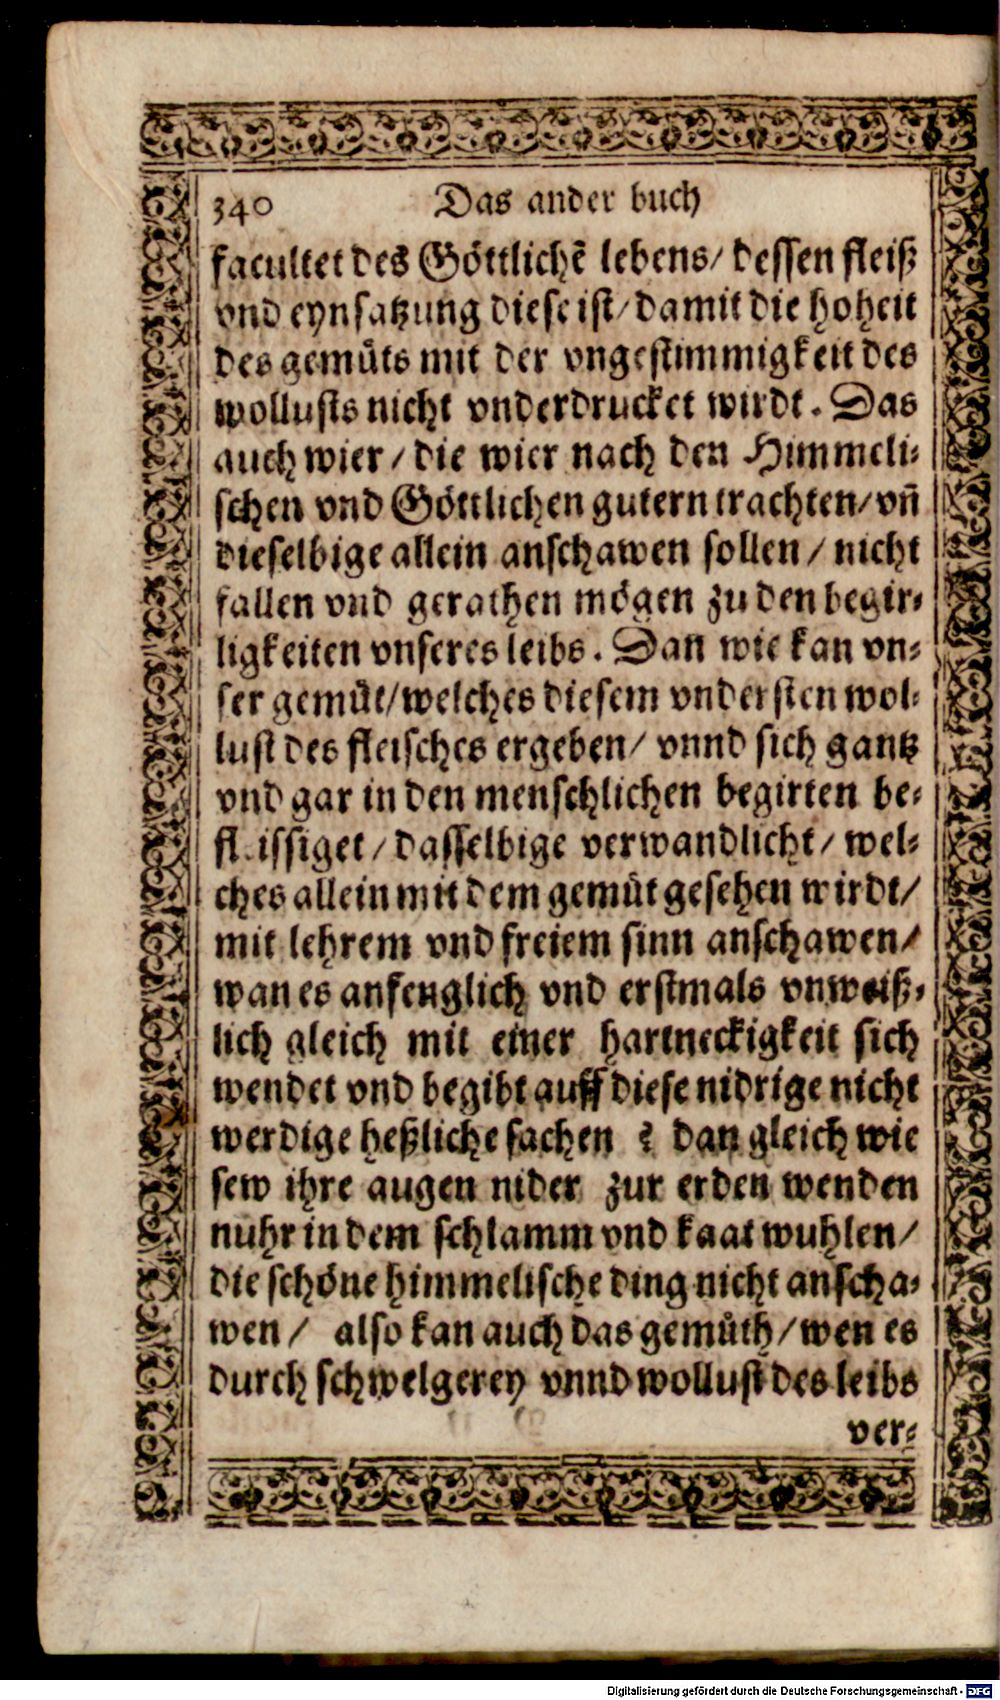 340 Das ander buch
facultet des Göttlichē lebens/ dessen fleiß
vnd eynsatzung diese ist/ damit die hoheit
des gemüts mit der vngestimmigkeit des
wollusts nicht vnderdrucket wirdt. Das
auch wier/ die wier nach den Himmeli-
schen vnd Göttlichen gutern trachten/ vn̄
dieselbige allein anschawen sollen/ nicht
fallen vnd gerathen mögen zu den begir-
ligkeiten vnseres leibs. Dan wie kan vn-
ser gemüt/ welches diesem vndersten wol-
lust des fleisches ergeben/ vnnd sich gantz
vnd gar in den menschlichen begirten be-
fl issiget/ dasselbige verwandlicht/ wel-
ches allein mit dem gemüt gesehen wirdt/
mit lehrem vnd freiem sinn anschawen/
wan es anfenglich vnd erstmals vnweiß-
lich gleich mit einer hartneckigkeit sich
wendet vnd begibt auff diese nidrige nicht
werdige heßliche sachen ? dan gleich wie
sew ihre augen nider zur erden wenden
nuhr in dem schlamm vnd kaat wuhlen/
die schöne himmelische ding nicht anscha-
wen/ also kan auch das gemüth/ wen es
durch schwelgerey vnnd wollust des leibs
ver-
Digitalisierung gefördert durch die Deutsche Forschungsgemeinschaft - DFG